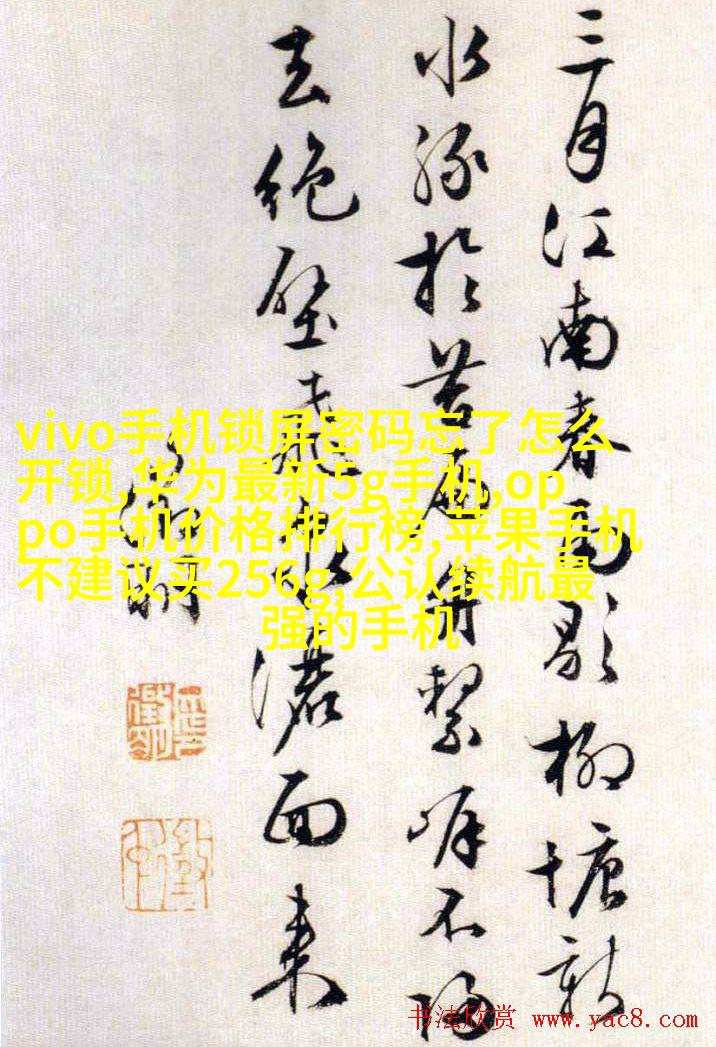 三月江南春雨歇柳塘新
水綠於苔扁舟繫岸不歸
去絕壁飛泉灑面來
徵明
vivo手机锁屏密码忘了怎么
开锁,华为最新5g手机,op
po手机价格排行榜,苹果手机
不建议买256g,公认续航最
强的手机
书法欣赏 www.yac8.com